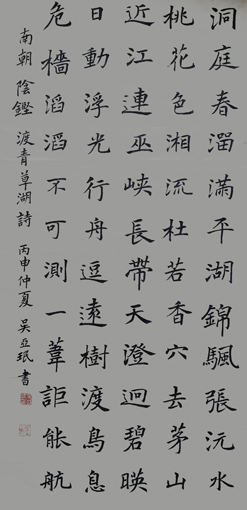 洞庭春溜滿平湖錦颿張沅水
桃花色湘流杜若香穴去茅山
近江連巫峽長帶天澄迥碧暎
日動浮光行舟逗遠樹渡鳥息
危檣滔滔不可測一葦詎能航
南朝 陰鏗 渡青草湖詩 丙申仲夏 吳亞珉 書